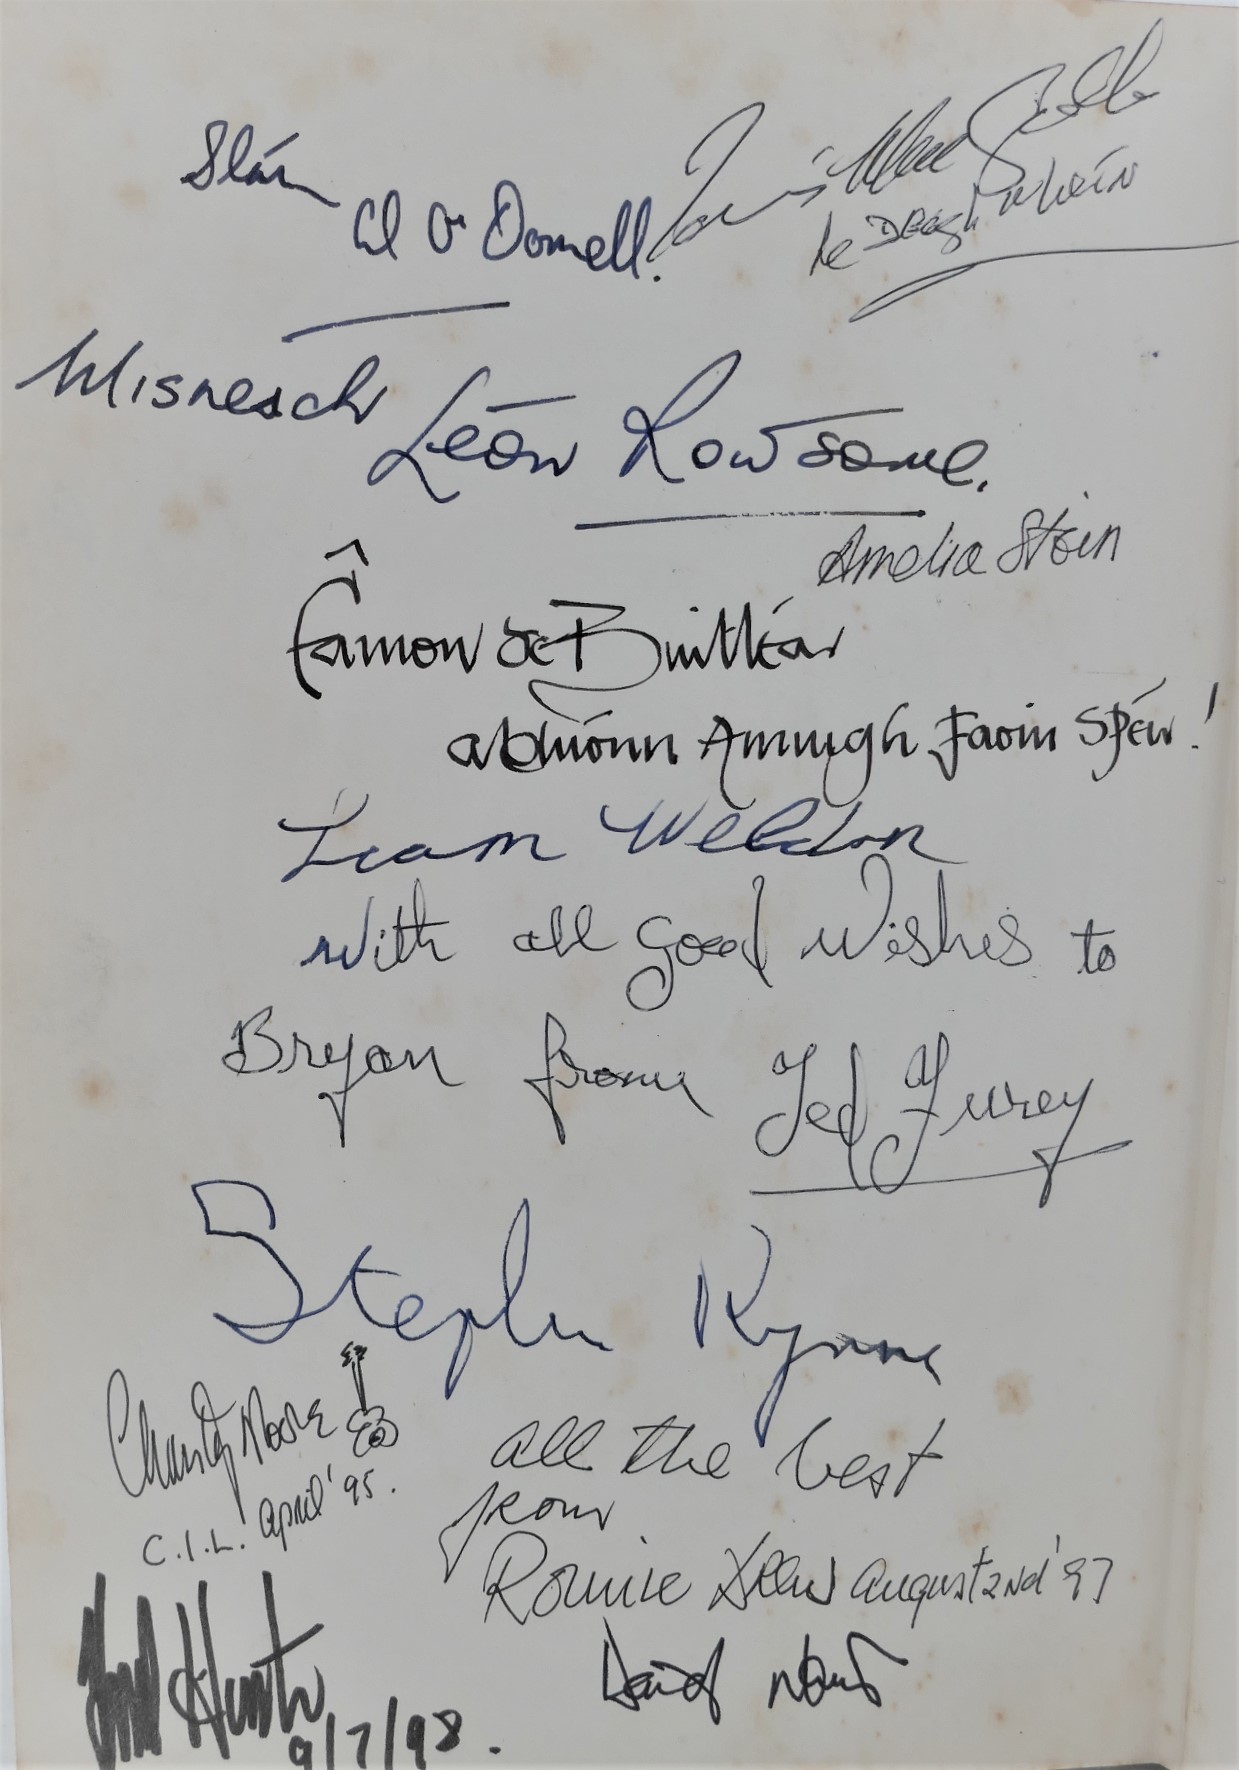 Slán
Al O'Donnell.
le Deagh Mhéin
Misneach
Leon Rowsome.
Amelia Stein
Éamon de Buitléar
Amuigh Faoin Spéir!
Liam Weldon
With all good Wishes to
Bryan from Ted Furey
Stephen Rynne
Christy Moore
C.I.L. april '95.
all the best
from
Ronnie Drew august 2nd '97
9/7/98.